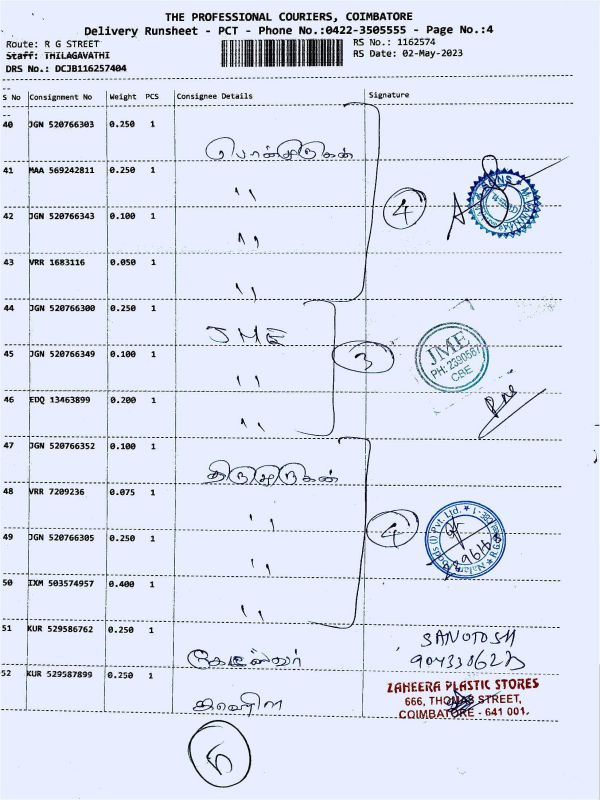 THE PROFESSIONAL COURIERS, COIMBATORE
Delivery Runsheet - PCT - Phone No.:0422-3505555 - Page No.:4
Route: R G STREET
RS No.: 1162574
Staff: THILAGAVATHI
RS Date: 02-May-2023
DRS No.: DCJB116257404
S No Consignment No Weight PCS Consignee Details Signature
40 JGN 520766303 0.250 1
பொன்முருகன்
41 MAA 569242811 0.250 1
42 JGN 520766343 0.100 1
4
43 VRR 1683116 0.050 1
44 JGN 520766300 0.250 1
JME
45 JGN 520766349 0.100 1
3
JME
PH: 2390567
CBE
46 EDQ 13463899 0.200 1
47 JGN 520766352 0.100 1
திருமுருகன்
48 VRR 7209236 0.075 1
49 JGN 520766305 0.250 1
4
50 IXM 503574957 0.400 1
51 KUR 529586762 0.250 1
52 KUR 529587899 0.250 1
ZAHEERA PLASTIC STORES
666, THOMAS STREET,
COIMBATORE - 641 001.